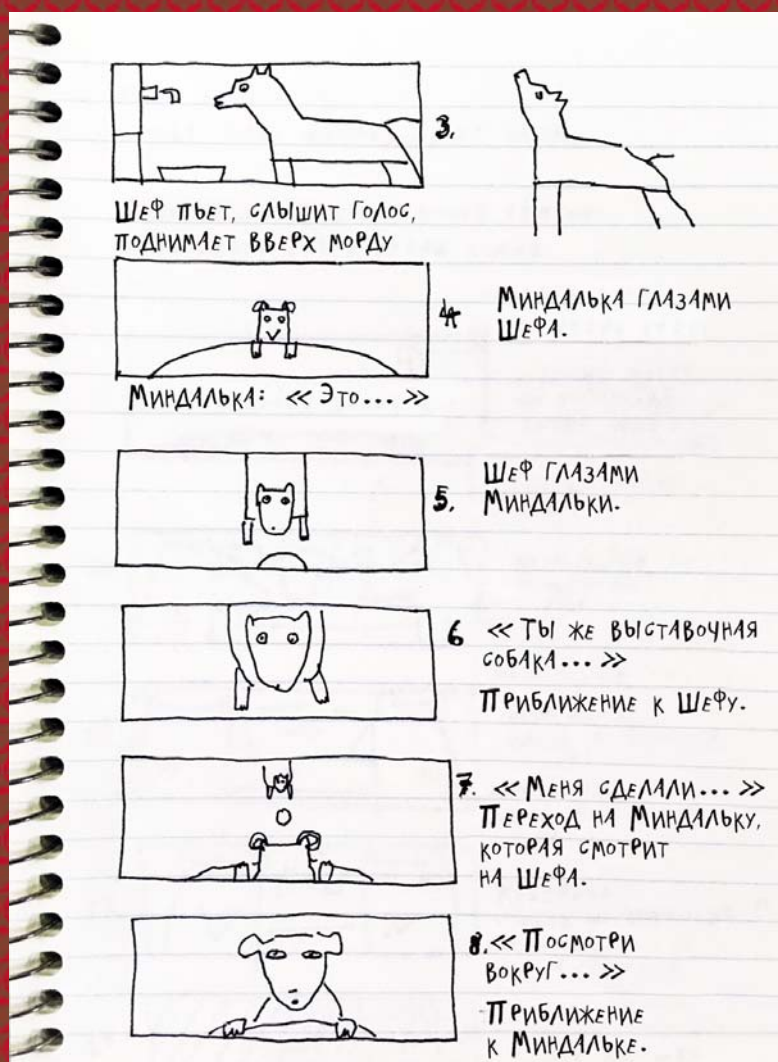 3.
Шеф пьет, слышит голос,
поднимает вверх морду
4
Миндалька глазами
Шефа.
Миндалька: «Это...»
5.
Шеф глазами
Миндальки.
6 «Ты же выставочная
собака...»
Приближение к Шефу.
7. «Меня сделали...»
Переход на Миндальку,
которая смотрит
на Шефа.
8. «Посмотри
вокруг...»
Приближение
к Миндальке.